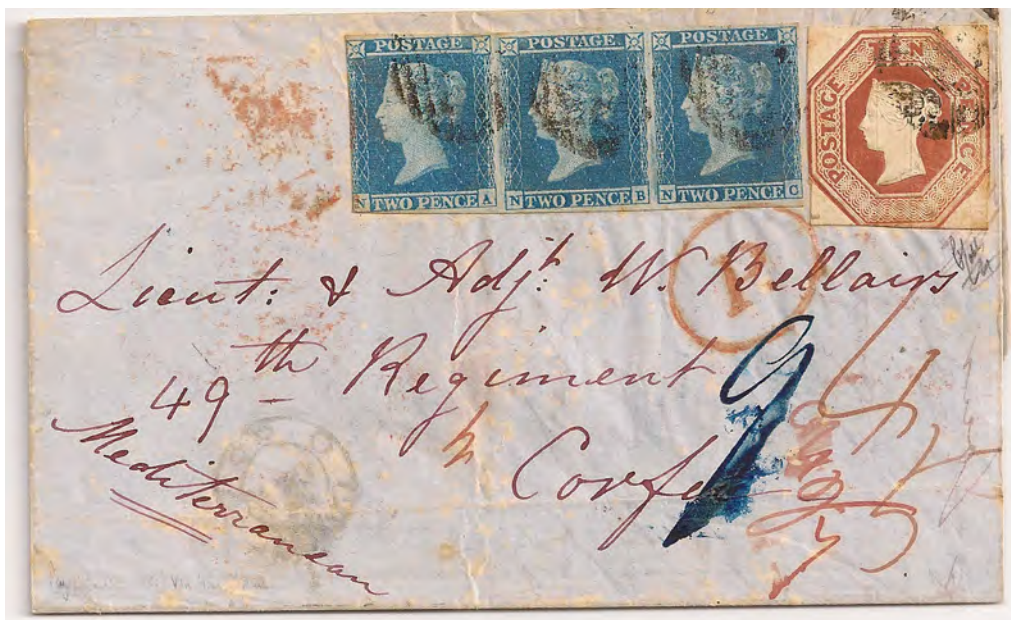 POSTAGE POSTAGE POSTAGE
N TWO PENCE A N TWO PENCE B N TWO PENCE C
POSTAGE TEN PENCE
P
Lieut: & Adjt. W. Bellairs
49th Regiment
Corfu
Mediterranean
9